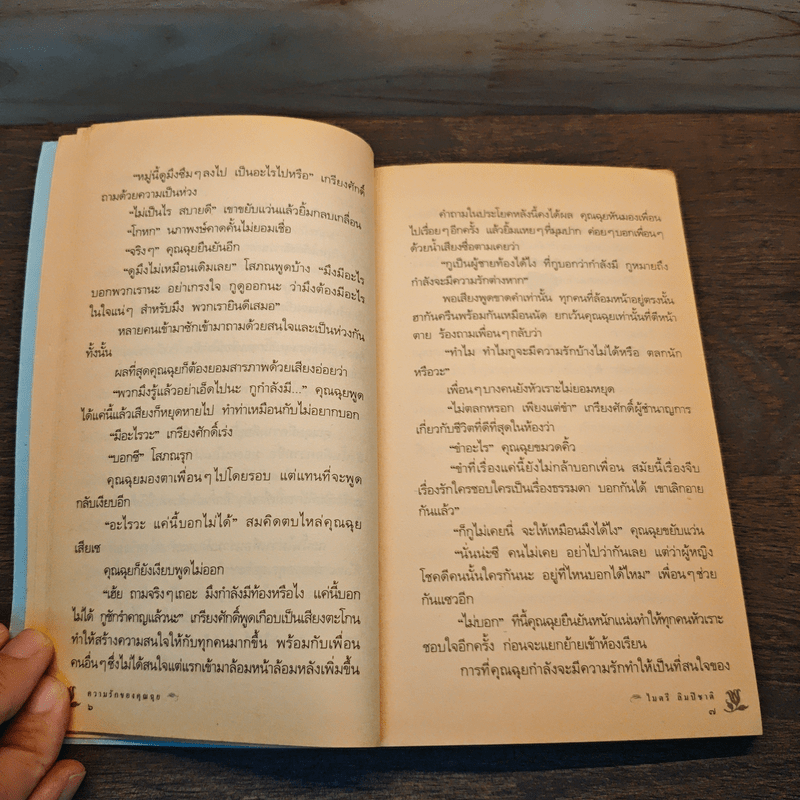 “หมู่นี้ดูมึงซึมๆลงไป เป็นอะไรไปหรือ” เกรียงศักดิ์
ถามด้วยความเป็นห่วง
“ไม่เป็นไร สบายดี” เขาขยับแว่นแล้วยิ้มกลบเกลื่อน
“โกหก” นภาพงษ์คาดคั้นไม่ยอมเชื่อ
“จริงๆ” คุณฉุยยืนยันอีก
“ดูมึงไม่เหมือนเดิมเลย” โสภณพูดบ้าง “มึงมีอะไร
บอกพวกเรานะ อย่าเกรงใจ กูดูออกนะ ว่ามึงต้องมีอะไร
ในใจแน่ๆ สำหรับมึง พวกเรายินดีเสมอ”
หลายคนเข้ามาซักเข้ามาถามด้วยสนใจและเป็นห่วงกัน
ทั้งนั้น
ผลที่สุดคุณฉุยก็ต้องยอมสารภาพด้วยเสียงอ่อยว่า
“พวกมึงรู้แล้วอย่าเอ็ดไปนะ กูกำลังมี...” คุณฉุยพูด
ได้แค่นี้แล้วเสียงก็หยุดหายไป ทำท่าเหมือนกับไม่อยากบอก
“มีอะไรวะ” เกรียงศักดิ์เร่ง
“บอกซี” โสภณรุก
คุณฉุยมองตาเพื่อนๆไปโดยรอบ แต่แทนที่จะพูด
กลับเงียบอีก
“อะไรวะ แค่นี้บอกไม่ได้” สมคิดตบไหล่คุณฉุย
เสียเซ
คุณฉุยก็ยังเงียบพูดไม่ออก
“เฮ้ย ถามจริงๆเถอะ มึงกำลังมีท้องหรือไง แค่นี้บอก
ไม่ได้ กูชักรำคาญแล้วนะ” เกรียงศักดิ์พูดเกือบเป็นเสียงตะโกน
ทำให้สร้างความสนใจให้กับทุกคนมากขึ้น พร้อมกับเพื่อน
คนอื่นๆซึ่งไม่ได้สนใจแต่แรกเข้ามาล้อมหน้าล้อมหลังเพิ่มขึ้น
ความรักของคุณฉุย
๖
คำถามในประโยคหลังนี้คงได้ผล คุณฉุยหันมองเพื่อน
ไปเรื่อยๆอีกครั้ง แล้วยิ้มแหยๆที่มุมปาก ค่อยๆบอกเพื่อนๆ
ด้วยน้ำเสียงซื่อตามเคยว่า
“กูเป็นผู้ชายท้องได้ไง ที่กูบอกว่ากำลังมี กูหมายถึง
กำลังจะมีความรักต่างหาก”
พอเสียงพูดขาดคำเท่านั้น ทุกคนที่ล้อมหน้าอยู่ตรงนั้น
ฮากันครืนพร้อมกันเหมือนนัด ยกเว้นคุณฉุยเท่านั้นที่ตีหน้า
ตาย ร้องถามเพื่อนๆกลับว่า
“ทำไม ทำไมกูจะมีความรักบ้างไม่ได้หรือ ตลกนัก
หรือวะ”
เพื่อนๆบางคนยังหัวเราะไม่ยอมหยุด
“ไม่ตลกหรอก เพียงแต่ขำ” เกรียงศักดิ์ผู้ชำนาญการ
เกี่ยวกับชีวิตที่ดีที่สุดในห้องว่า
“ขำอะไร” คุณฉุยขมวดคิ้ว
“ขำที่เรื่องแค่นี้ยังไม่กล้าบอกเพื่อน สมัยนี้เรื่องจีบ
เรื่องรักใครชอบใครเป็นเรื่องธรรมดา บอกกันได้ เขาเลิกอาย
กันแล้ว”
“ก็กูไม่เคยนี่ จะให้เหมือนมึงได้ไง” คุณฉุยขยับแว่น
“นั่นน่ะซี คนไม่เคย อย่าไปว่ากันเลย แต่ว่าผู้หญิง
โชคดีคนนั้นใครกันนะ อยู่ที่ไหนบอกได้ไหม” เพื่อนๆช่วย
กันแซวอีก
“ไม่บอก” ทีนี้คุณฉุยยืนยันหนักแน่นทำให้ทุกคนหัวเราะ
ชอบใจอีกครั้ง ก่อนจะแยกย้ายเข้าห้องเรียน
การที่คุณฉุยกำลังจะมีความรักทำให้เป็นที่สนใจของ
ไมตรี ลิมปิชาติ
๗